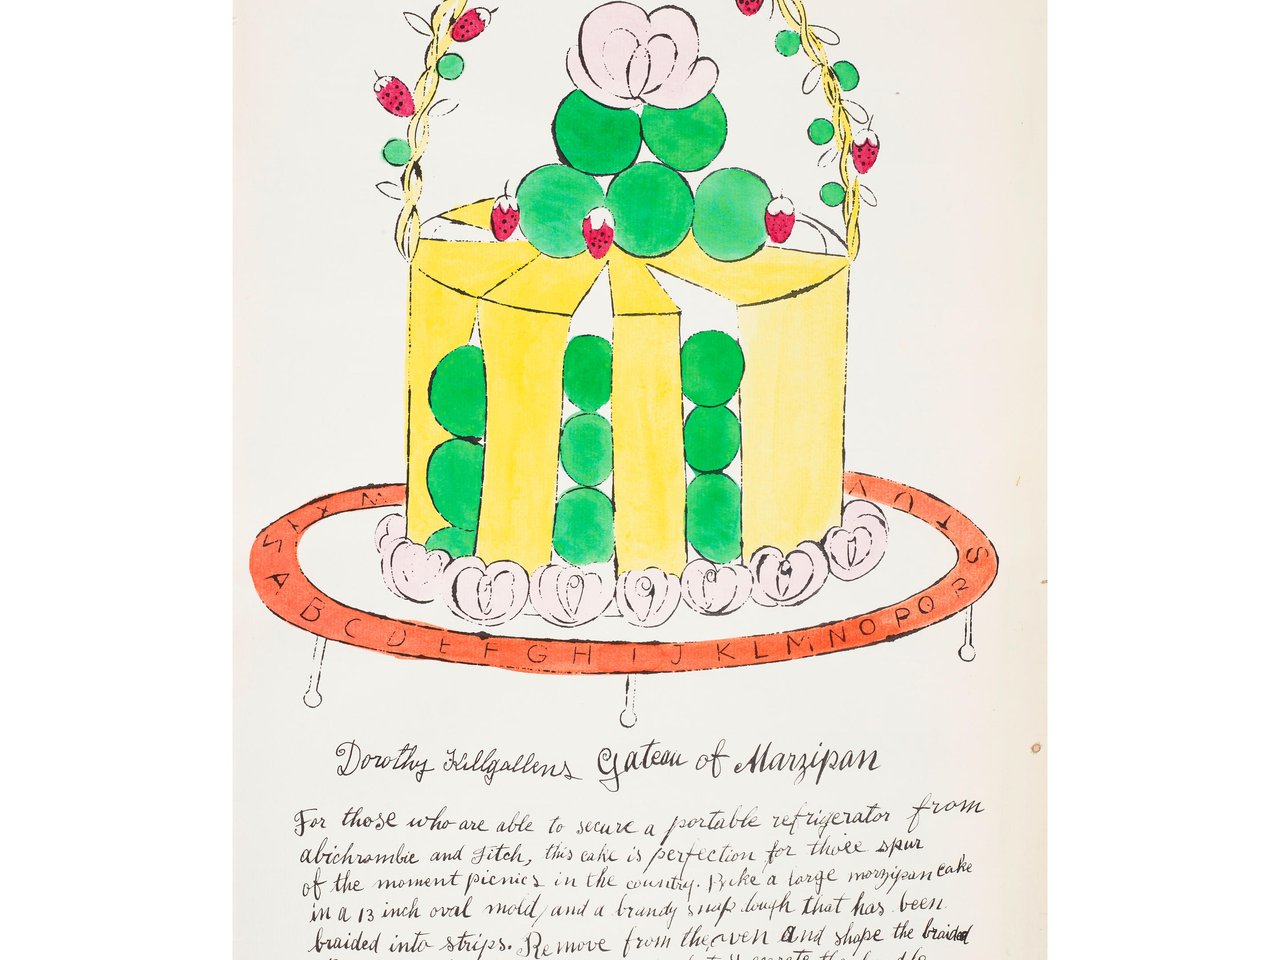 A B C D E F G H I J K L M N O P Q R S T U V W X Y Z
Dorothy Killgallens Gateau of Marzipan
For those who are able to secure a portable refrigerator from
abichrombie and Fitch, this cake is perfection for those spur
of the moment picnics in the country. Bake a large marzipan cake
in a 13 inch oval mold, and a brandy snap dough that has been
braided into strips. Remove from the oven and shape the braided